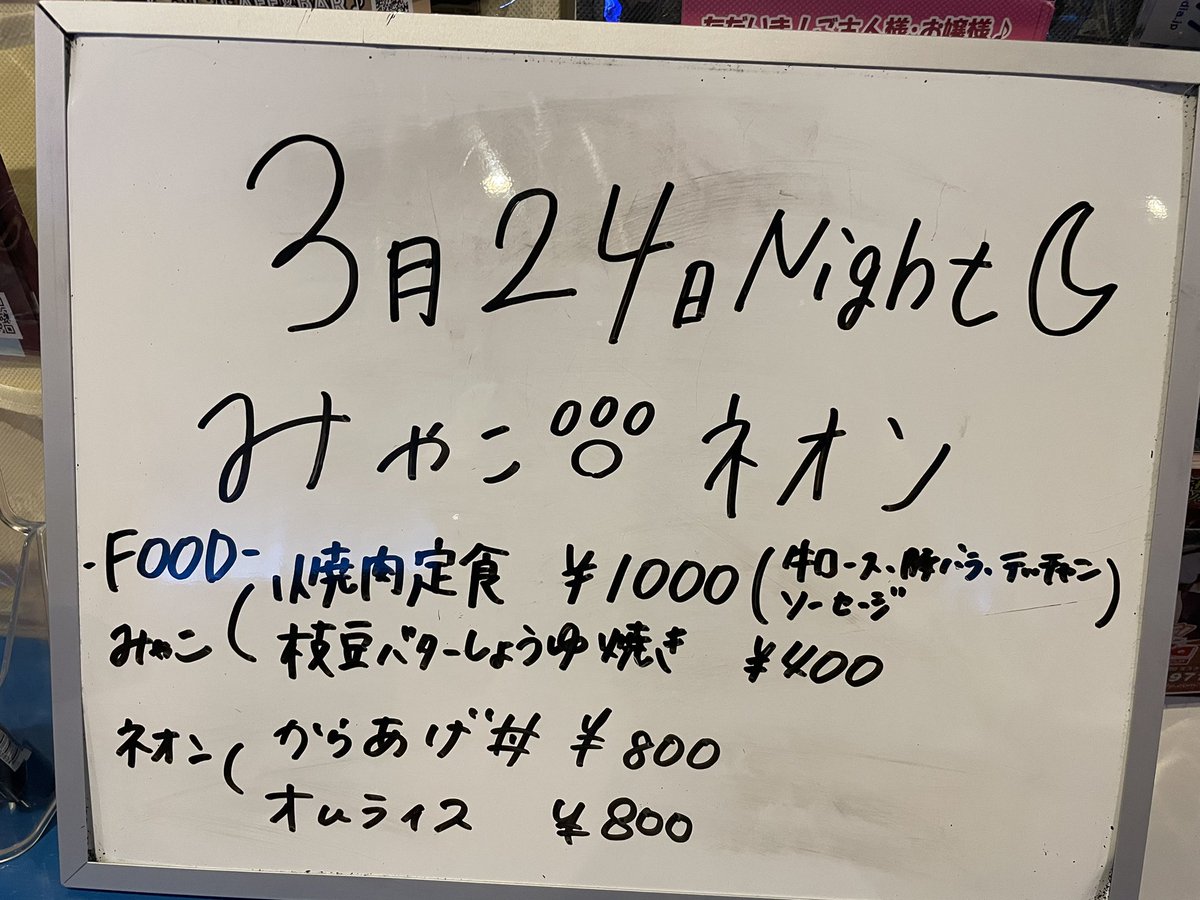 ただいま！ご主人様・お嬢様♪
dia.jp
3月24日 Night
みやこ ネオン
・FOOD-
焼肉定食 ¥1000 (牛ロース、豚バラ、テッチャン
ソーセージ)
みやこ ( 枝豆バターしょうゆ焼き ¥400
ネオン ( からあげ丼 ¥800
オムライス ¥800
97